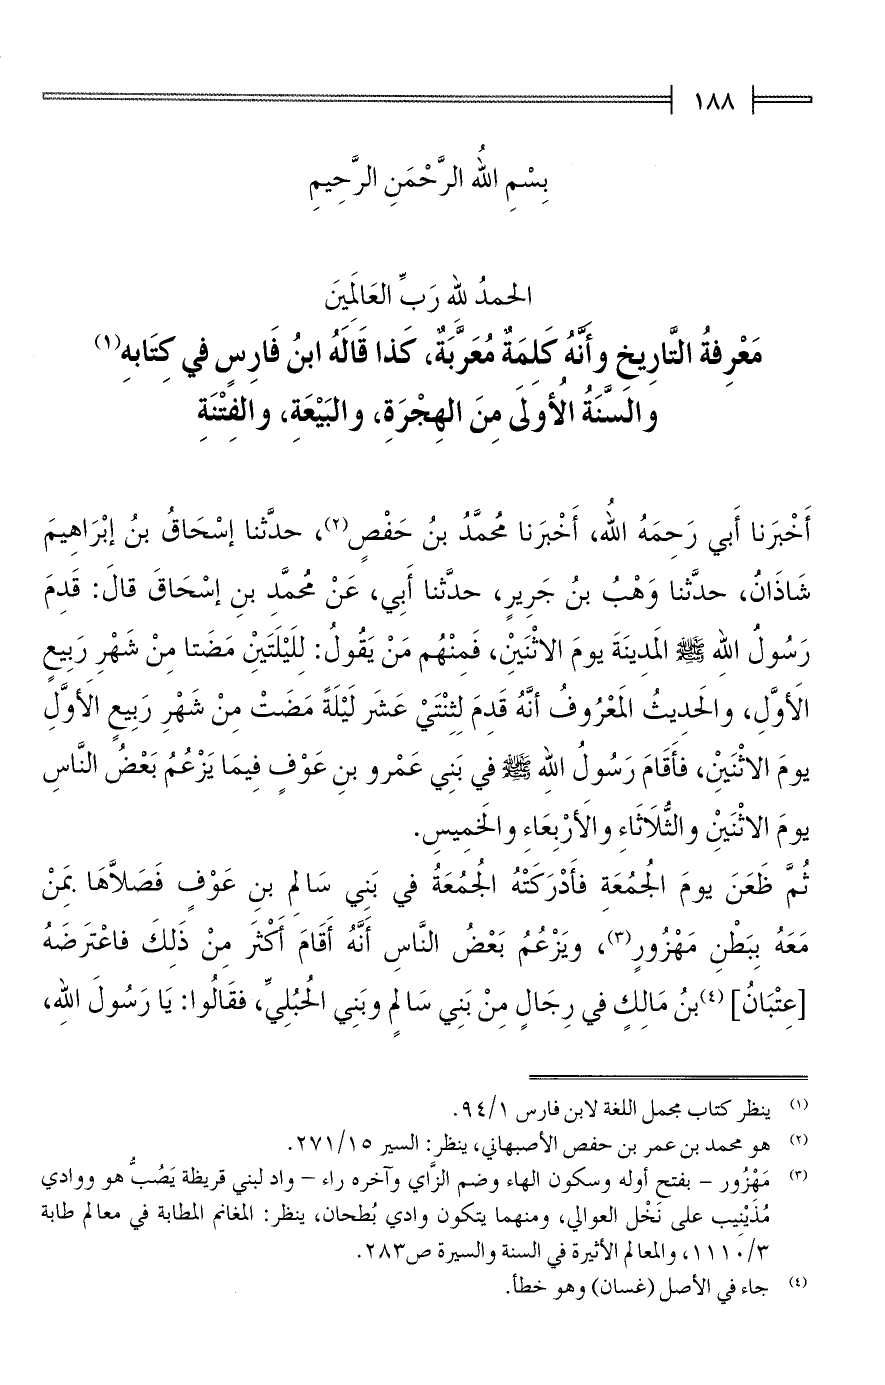 ١٨٨
بِسْمِ اللهُ الرَّحْمَنِ الرَّحِيمِ
الحمدُ لله رَبِّ العَالَمِينَ
مَعْرِفةُ التَّارِيخِ وأَنَّهُ كَلِمَةٌ مُعَرَّبَةٌ، كَذا قَالَهُ ابنُ فَارِسٍ في كِتَابهِ(١)
والسَّنَةُ الأُولَى مِنَ الهِجْرَةِ، والبَيْعَةِ، والفِتْنَةِ
أَخْبَرَنا أَبي رَحِمَهُ اللهُ، أَخْبَرَنا مُحمَّدُ بنُ حَفْصٍ(٢)، حدثَّنا إسْحَاقُ بنُ إبْرَاهِيمَ
شَاذَانُ، حدثَّنا وَهْبُ بنُ جَرِيرٍ، حدثَّنا أَبي، عَنْ مُحمَّدِ بنِ إسْحَاقَ قالَ: قَدِمَ
رَسُولُ اللهِ ﷺ المَدِينَةَ يومَ الاثْنَيْنِ، فَمِنْهُم مَنْ يَقُولُ: لِلَيْلَتَيْنْ مَضَتا مِنْ شَهْرِ رَبيعٍ
الأَوَّلِ، والحَدِيثُ المَعْرُوفُ أنَّهُ قَدِمَ لِثِنْتَيْ عَشَر لَيْلَةً مَضَتْ مِنْ شَهْرِ رَبيعٍ الأوَّلِ
يومَ الاثْنَيْنِ، فأَقَامَ رَسُولُ اللهِ ﷺ في بَنِي عَمْرو بنِ عَوْفٍ فِيمَا يَزْعُمُ بَعْضُ النَّاسِ
يومَ الاثْنَيْنْ والثُّلاَثَاءِ والأَرْبعَاءِ والخَمِيسِ.
ثُمَّ ظَعَنَ يومَ الجُمعَةِ فأَدْرَكَتْهُ الجُمُعَةُ في بَنِي سَالمِ بنِ عَوْفٍ فَصَلاَّهَا بمَنْ
مَعَهُ بِبَطْنِ مَهْزُورٍ(٣)، ويَزْعُمُ بَعْضُ النَّاسِ أَنَّهُ أَقَامَ أَكْثَرَ مِنْ ذَلِكَ فاعْتَرَضَهُ
[عِتْبَانُ] (٤)بنُ مَالِكٍ في رِجَالٍ مِنْ بَنِي سَالمٍ وبَنِي الحُبُلِيِّ، فقَالُوا: يَا رَسُولَ اللهِ،
(١) ينظر كتاب مجمل اللغة لابن فارس ٩٤/١.
(٢) هو محمد بن عمر بن حفص الأصبهاني، ينظر: السير ٢٧١/١٥.
(٣) مَهْزُور – بفتح أوله وسكون الهاء وضم الزَّاي وآخره راء – واد لبني قريظة يَصُبُّ هو ووادي
مُذَيْنِيب على نَخْل العوالي، ومنهما يتكون وادي بُطحان، ينظر: المغانم المطابة في معالم طابة
١١١٠/٣، والمعالم الأثيرة في السنة والسيرة ص٢٨٣.
(٤) جاء في الأصل (غسان) وهو خطأ.